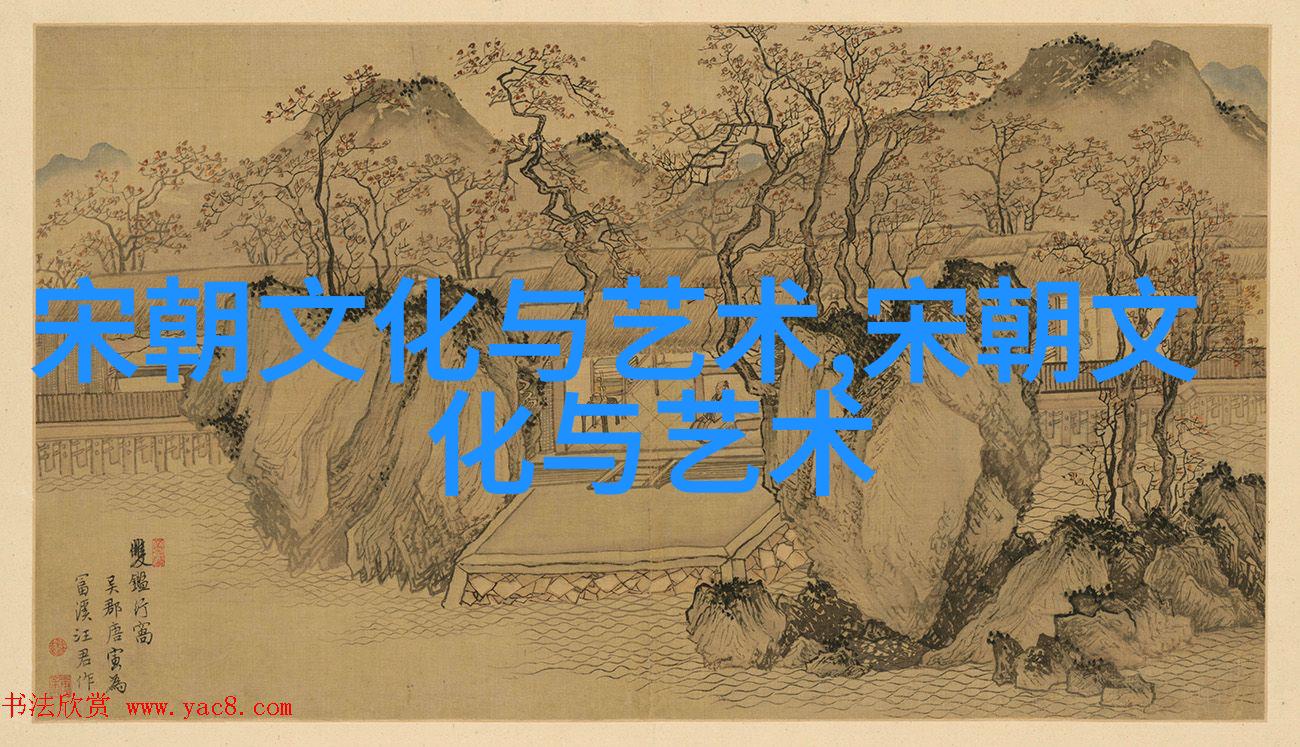 宋朝文化与艺术,宋朝文
化与艺术
雙鑑行窩
吴郡唐寅為
富溪汪君作
书法欣赏 www.yac8.com